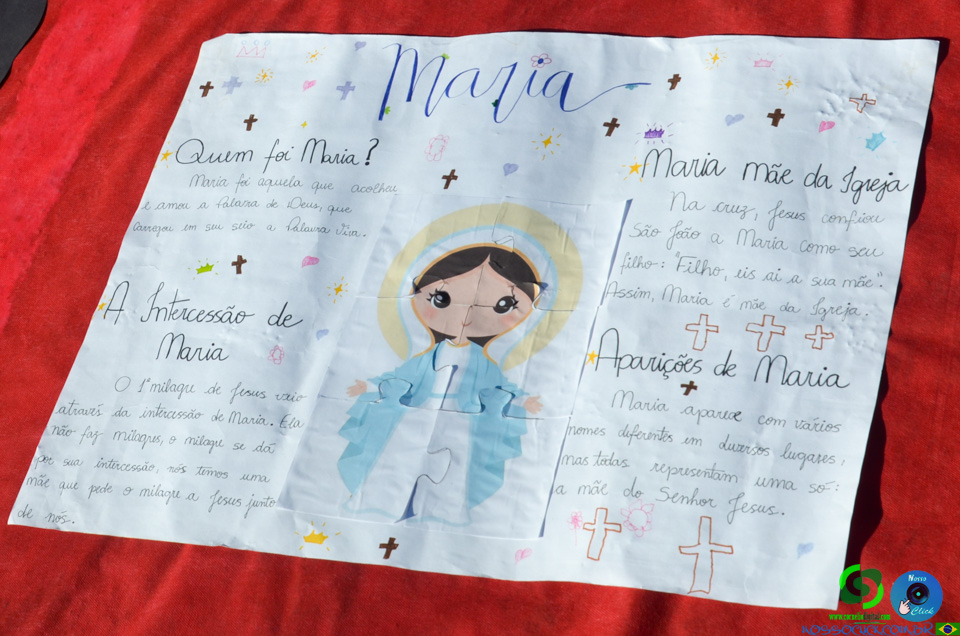 Maria
Quem foi Maria?
Maria foi aquela que acolheu
e amou a Palavra de Deus, que
carregou em seu seio a Palavra Viva.
A Intercessão de
Maria
O 1° milagre de Jesus veio
através da intercessão de Maria. Ela
não faz milagres, o milagre se dá
por sua intercessão, nós temos uma
mãe que pede o milagre a Jesus junto
de nós.
Maria mãe da Igreja
Na cruz, Jesus confiou
São João a Maria como seu
filho: "Filho, eis ai a sua mãe".
Assim, Maria é mãe da Igreja.
Aparições de Maria
Maria aparece com vários
nomes diferentes em diversos lugares,
mas todas representam uma só:
a mãe do Senhor Jesus.
Nosso
Click